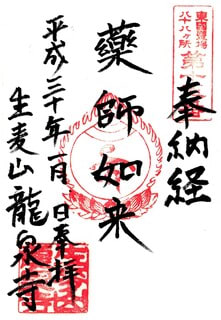 奉納経
東國霊場
八十八ヶ所
第十
藥師如来
平成三十年一月 日奉拝
生麦山龍泉寺